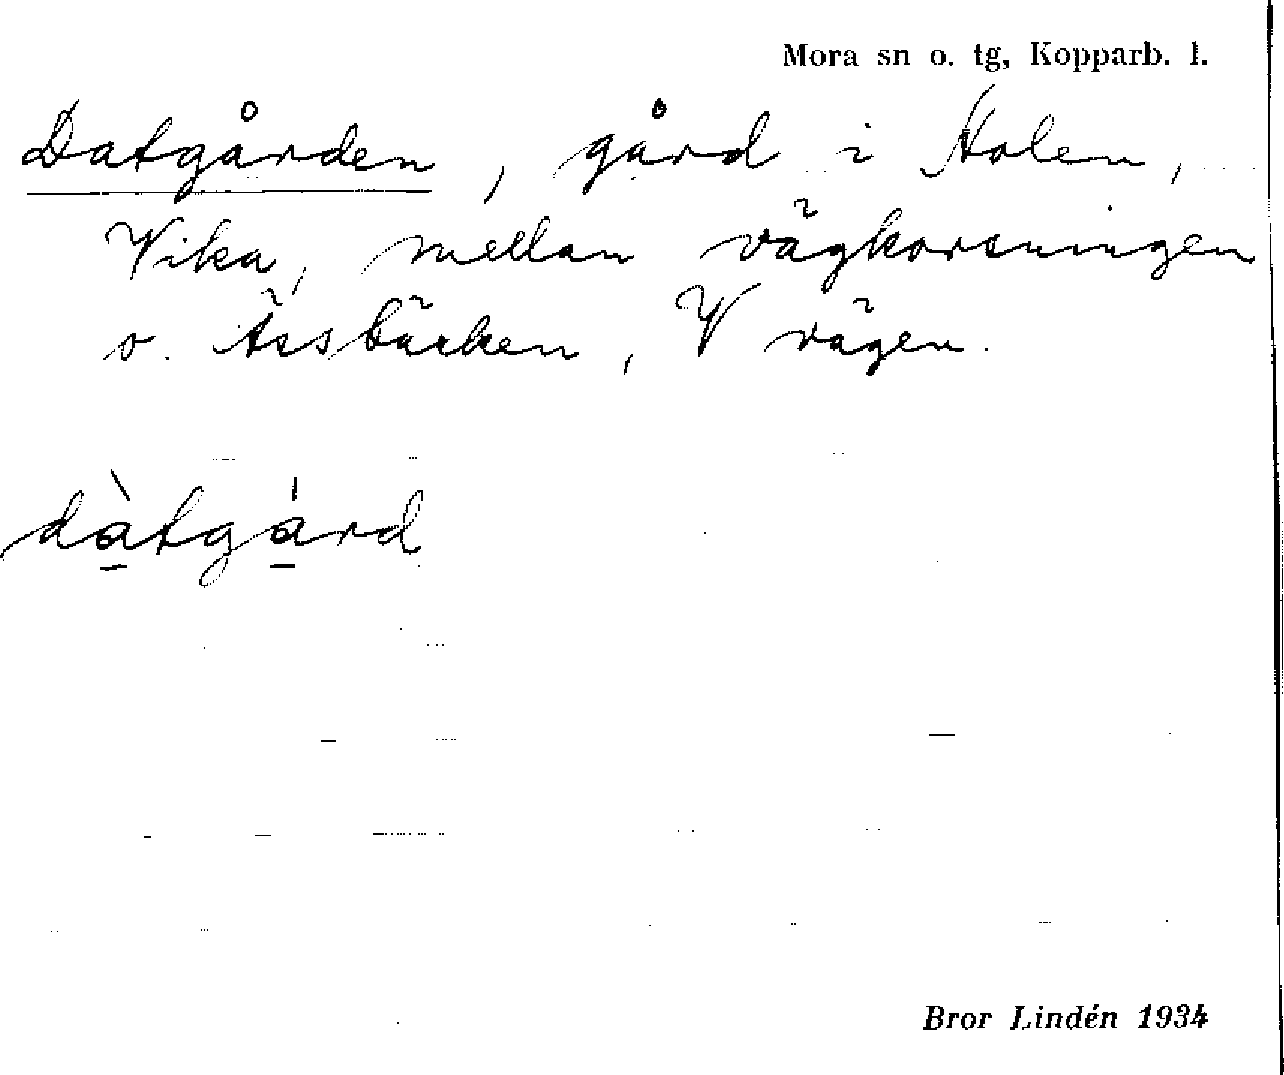 Mora sn o. tg, Kopparb. l.
Datgården, gård i Holen,
Vika, mellan vägkorsningen
o. Ässbäcken, V vägen.
dàtgárd
Bror Lindén 1934